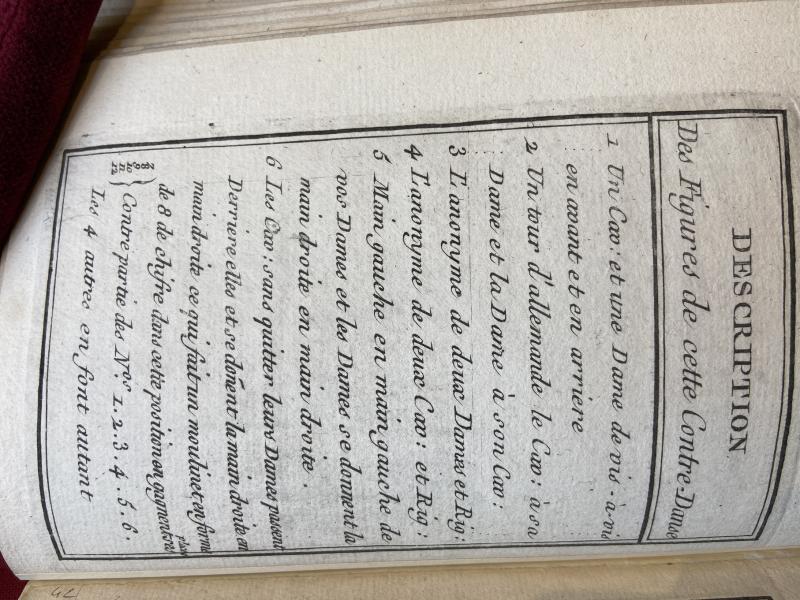 DESCRIPTION
Des Figures de cette Contre-Danse
1 Un Cav: et une Dame de vis-à-vis
en avant et en arriere
2 Un tour d'allemande le Cav: à sa
Dame et la Dame à son Cav:
3 L'anonyme de deux Dames et Rig:
4 L'anonyme de deux Cav: et Rig:
5 Main gauche en main gauche de
nos Dames et les Dames se donnent la
main droite en main droite.
6 Les Cav: sans quitter leurs Dames passent
Derriere elles et se donent la main droite en
main droite ce qui fait un moulinet en forme
de 8 de chifre dans cette position on gagnent
7 8 9 10 11 12 } Contre partie des Nos 1. 2. 3. 4. 5. 6.
Les 4 autres en font autant